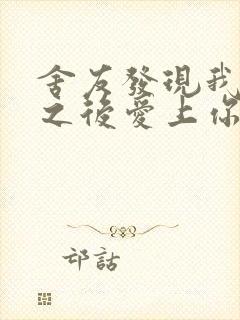 舍友發現我
之後愛上你
邙話